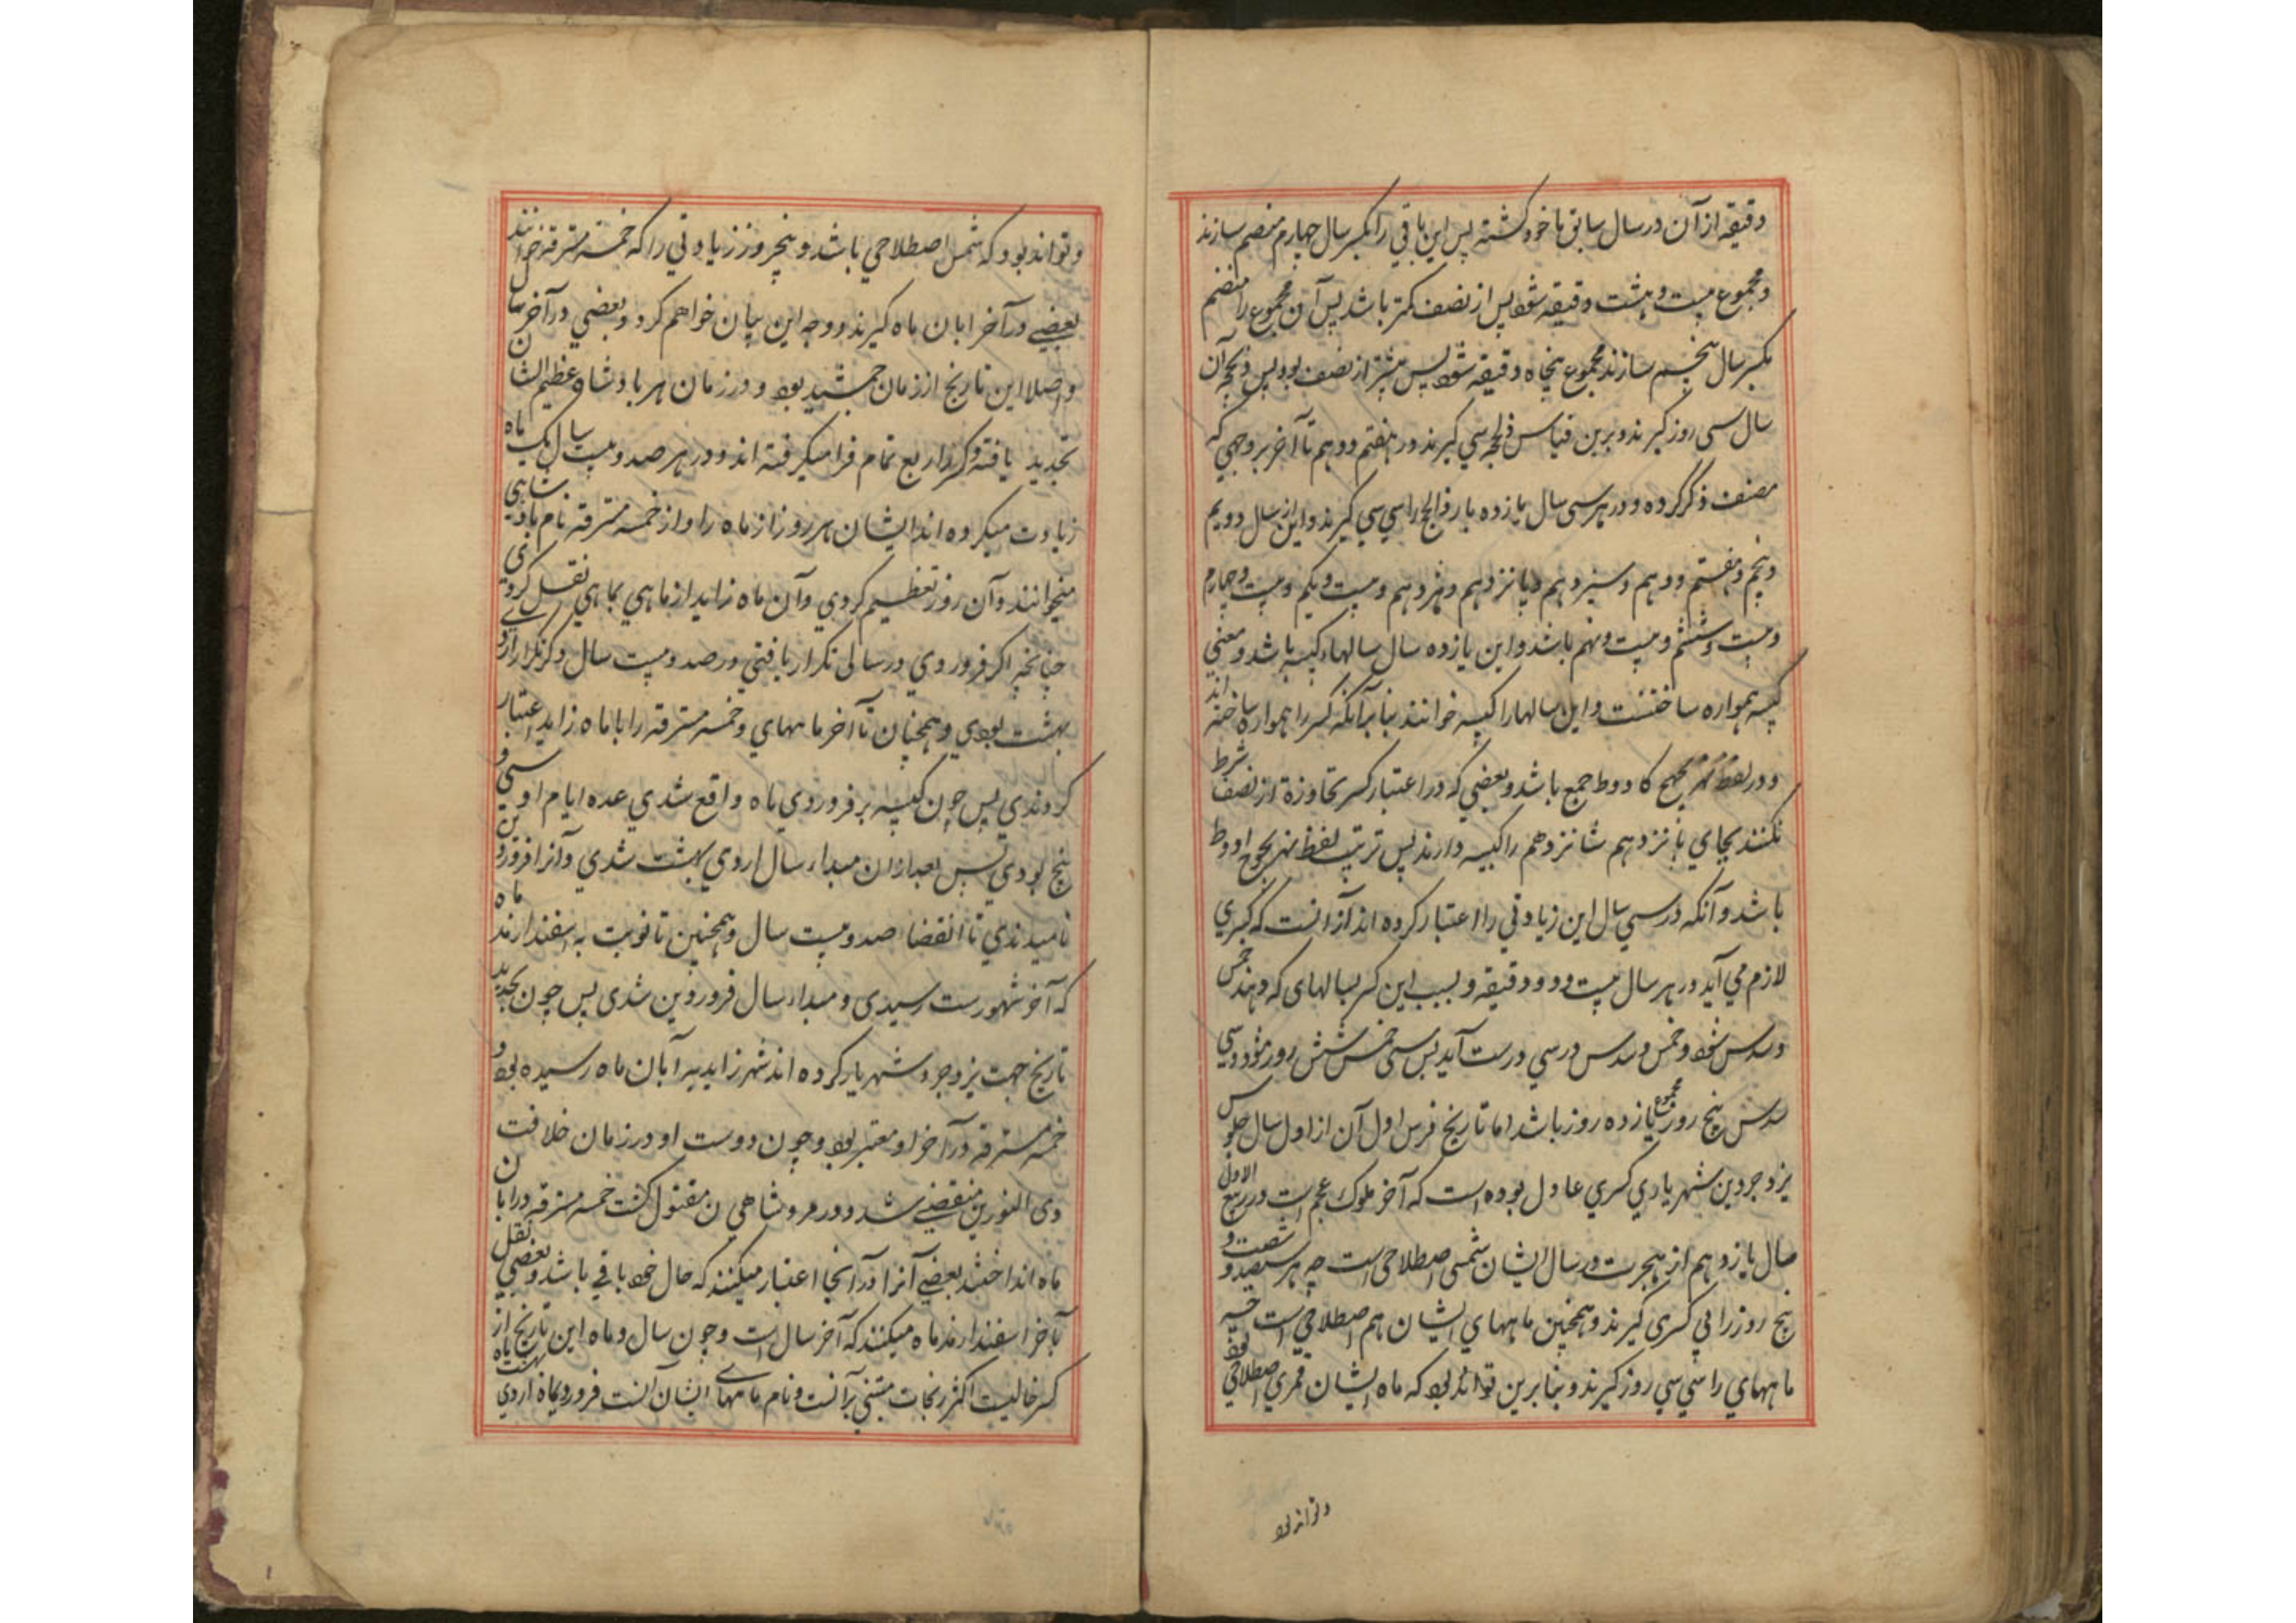 دقیقه از آن در سال سابق ماخوذ گشته پس این باقی را بکسر سال چهارم منضم سازند
و مجموع بیست و هشت دقیقه شود پس از نصف کمتر باشد پس آن مجموع را منضم
بکسر سال پنجم سازند مجموع پنجاه دقیقه شود پس بیشتر از نصف بود پس ذیحجه آن
سال سی روز گیرند و برین قیاس ذیحجه سی گیرند در هفتم و دهم تا آخر بر وجهی که
مصنف ذکر کرده و در هر سی سال یازده بار ذوالحجه را سی سی گیرند و این از سال دویم
و پنجم و هفتم و دهم و سیزدهم و پانزدهم و هژدهم و بیست و یکم و بیست و چهارم
و بیست و ششم و بیست و نهم باشد و این یازده سال سالهاء کبیسه باشد و معنی
کبیسه هموار ساختنست و این سالها را کبیسه خوانند بنا بر آنکه کسر را هموار ساخته اند
و در لفظ بهزیجهح کادوط جمع باشد و بعضی که در اعتبار کسر تجاوزه از نصف شرط
نکنند بجای پانزدهم شانزدهم را کبیسه دارند پس ترتیب لفظ بهزیجوح ادوط
باشد و آنکه در سی سال این زیادتی را اعتبار کرده اند از آنست که کسری
لازم می آید در هر سال بیست و دو دقیقه و بسبب این کسر بسالهای که دهند خمس
و سدس شود و خمس و سدس در سی درست آید پس سی خمس شش روز شود و سی
سدس پنج روز مجموع یازده روز باشد اما تاریخ فرس اول آن از اول سال جلوس
یزدجرد بن شهریاری کسری عادل بوده است که آخر ملوک عجم است در ربیع الاول
سال یازدهم از هجرت و سال ایشان شمسی اصطلاحی است چه هر سیصد و شصت و
پنج روز را بی کسری گیرند و همچنین ماههای ایشان هم اصطلاحی است چه
ماههای را سی سی روز گیرند و بنا برین تواند بود که ماه ایشان قمری اصطلاحی بود
و تواند بود
و تواند بود که شمسی اصطلاحی باشد و پنج روز زیادتی را که خمسه مسترقه خوانند
بعضی در آخر ابان ماه گیرند و وجه این بیان خواهم کرد و بعضی در آخر سال
و اصلا این تاریخ از زمان جمشید بود و در زمان هر بادشاه عظیم الشان
تجدید یافته و کسر را ربع تمام فرا میگرفته اند و در هر صد و بیست سال یک ماه
زیادت میکرده اند ایشان هر روز از ماه را و از خمسه مسترقه نام بادشاهی
میخوانند و آن روز تعظیم کردی و آن ماه زاید از ماهی بماهی نقل کردندی
چنانچه اگر فروردی در سالی تکرار یافتی در صد و بیست سال دگر تکرار اردی
بهشت بودی و همچنان تا آخر ماههای و خمسه مسترقه را با ماه زاید اعتبار
کردندی پس چون کبیسه بر فروردی ماه واقع شدی عده ایام او سی و
پنج بودی پس بعد ازان مبداء سال اردی بهشت شدی و آنرا فروردین
نامیدندی تا انقضاء صد و بیست سال و همچنین تا نوبت به اسفندارمذ ماه
که آخر شهورست رسیدی و مبداء سال فروردین شدی پس چون تجدید
تاریخ جهت یزدجرد شهریار کرده اند شهر زاید به آبان ماه رسیده بود و
خمسه مسترقه در آخر او معتبر بود و چون دوست او در زمان خلافت
ذی النورین منقضی شد و در مرو شاهی ن مقتول گشت خمسه مسترقه در ابان
ماه انداختند بعضی آنرا در آنجا اعتبار میکنند که حال خود باقی باشد و بعضی نقل
بآخر اسفندارمذ ماه میکنند که آخر سال است و چون سال و ماه این تاریخ از
کسر خالیست اکثر زیجات مبتنی برآنست و نام ماههای ایشان آنست فروردیماه اردی بهشت ماه